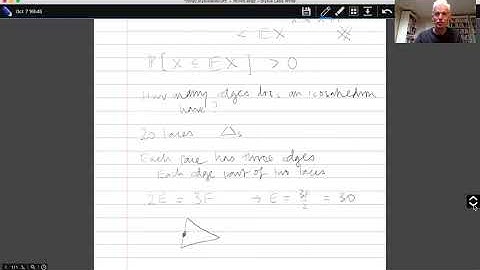 Oct 7
< 𝔼X
ℙ[X ≤ 𝔼X] > 0
How many edges does an icosahedron
have?
20 faces Δs
Each face has three edges
Each edge part of two faces
2E = 3F → E = 3F/2 = 30